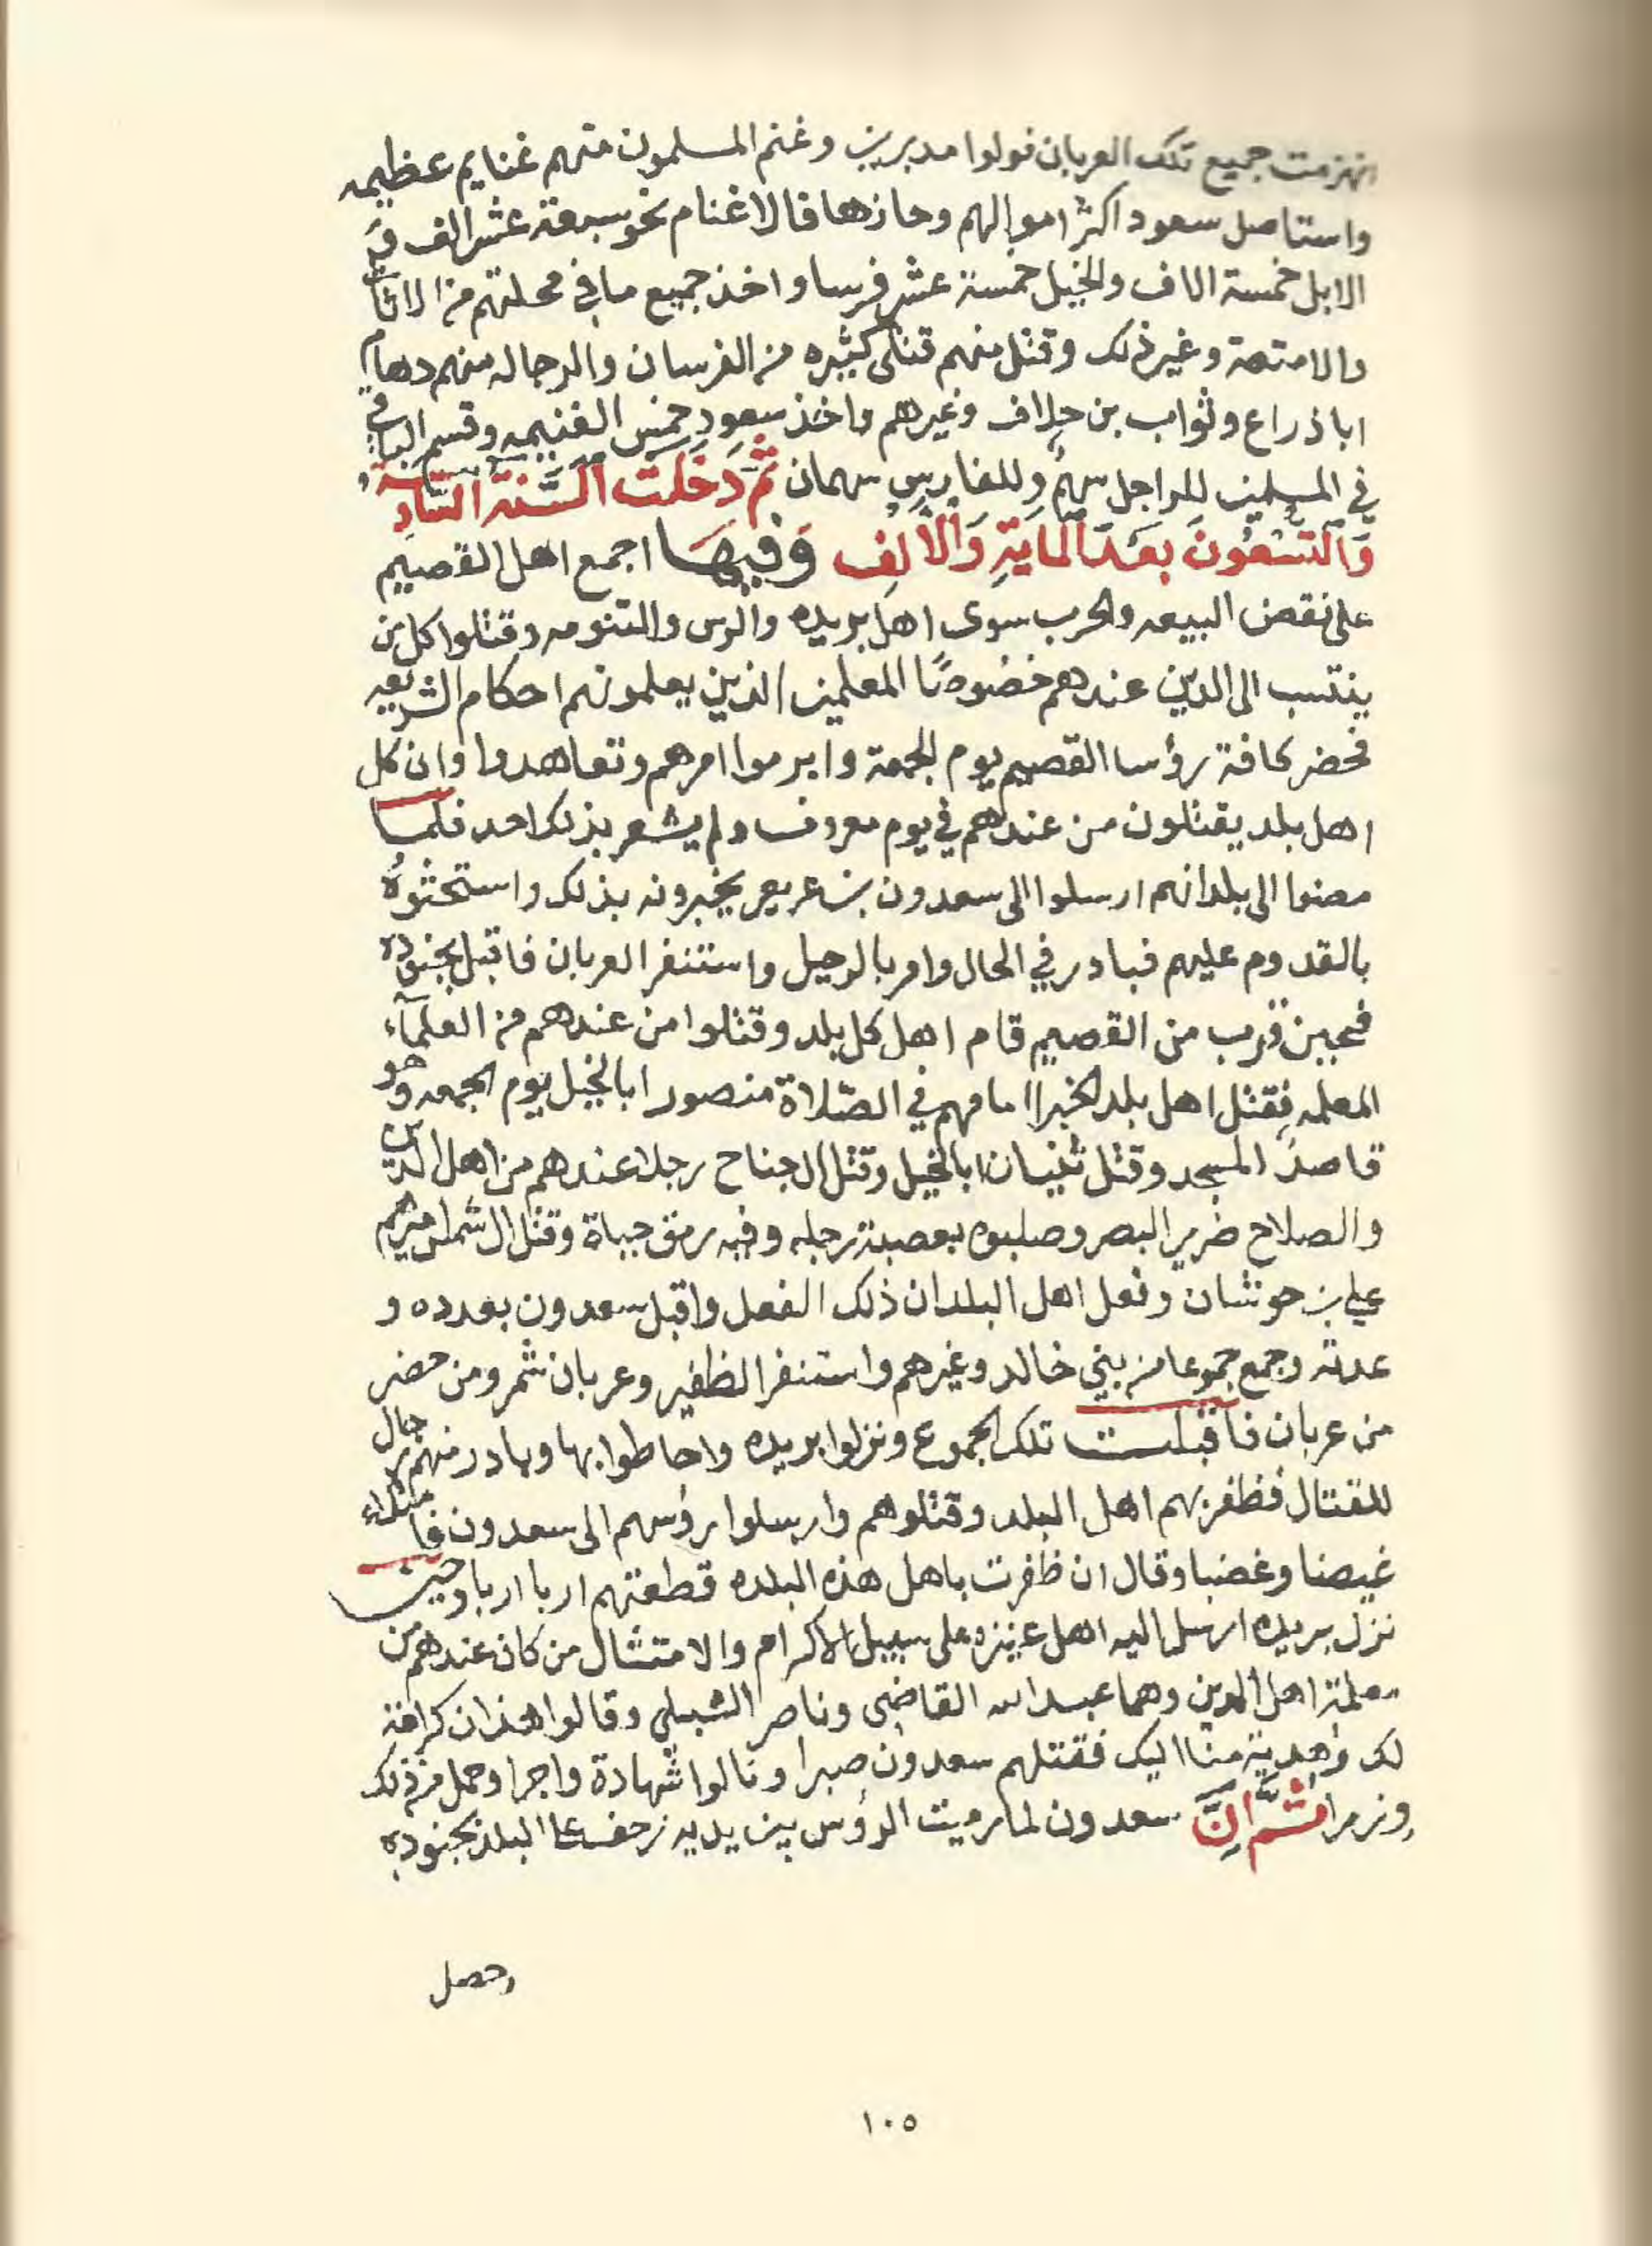 انهزمت جميع تلك العربان فولوا مدبرين وغنم المسلمون منهم غنايم عظيمه
واستاصل سعود اكثر اموالهم وحازها فالاغنام نحو سبعة عشر الف و
الابل خمسة الاف والخيل خمسة عشر فرسا واخذ جميع ما في محلتهم من الاثاث
والامتعة وغير ذلك وقتل منهم قتلى كثيره من الفرسان والرجاله منهم دهام
ابا ذراع وثواب بن حلاف وغيرهم واخذ سعود خمس الغنيمه وقسم الباقي
في المسلمين للراجل سهمٌ وللفارس سهمان ثُمَّ دَخَلَت السَّنَة السَّادِسَة
وَالتِّسْعُونَ بعَدَ المايَةِ وَالأَلِف وَفيهَا اجمع اهل القصيم
على نقض البيعه والحرب سوى اهل بريده والرس والتنومه وقتلوا كل من
ينتسب الى الدين عندهم خصُوصًا المعلمين الذين يعلمونهم احكام الشريعه
فحضر كافة رؤسا القصيم يوم الجمعة وابرموا امرهم وتعاهدوا وان كل
اهل بلد يقتلون من عندهم في يوم معروف ولم يشعر بذلك احد فلما
مضوا الى بلدانهم ارسلوا الى سعدون بن عريعر يخبرونه بذلك واستحثوهُ
بالقدوم عليهم فبادر في الحال وامر بالرحيل واستنفر العربان فاقبل بجنوده
فحين قرب من القصيم قام اهل كل بلد وقتلوا من عندهم من العلمآء
المعلمه فقتل اهل بلد الخبرا امامهم في الصّلاة منصور ابا الخيل يوم الجمعه وهو
قاصدُ المسجد وقتل ثنيان ابا الخيل وقتل ال جناح رجلا عندهم من اهل الدين
والصلاح ضرير البصر وصلبوه بعصبة رجله وفيه رمق حياة وقتل ال شماس اميرهم
علي بن حوشان وفعل اهل البلدان ذلك الفعل واقبل سعدون بعدده و
عدته وجمع جموعا من بني خالد وغيرهم واستنفر الظفير وعربان شمر ومن حضر
من عربان فاقبلت تلك الجموع ونزلوا بريده واحاطوا بها وبادر منهم رجال
للقتال فظفر بهم اهل البلد وقتلوهم وارسلوا رؤسهم الى سعدون فامتلاء
غيضا وغضبا وقال ان ظفرت باهل هذه البلده قطعتهم اربا اربا وحين
نزل بريده ارسل اليه اهل عنيزه على سبيل الاكرام والامتثال من كان عندهم من
معلمة اهل الدين وهما عبد الله القاضي وناصر الشبيلي وقالوا هذان كرامة
لك وهدية منا اليك فقتلهم سعدون صبرا ونالوا شهادة واجرا وحمل من ذلك
وزرا ثُمَّ اِنَّ سعدون لما رميت الرؤس بين يديه زحف على البلد بجنوده
وحصل
١٠٥